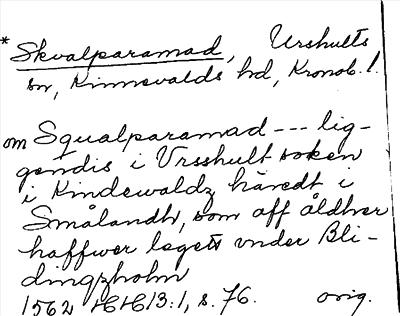 * Skvalparamad, Urshults
sn, Kinnevalds hd, Kronob. l.
om Squalparamad --- lig-
gendis i Vrsshult soken
i Kindewaldz häredt i
Smålandh, som aff åldher
haffwer legett vnder Bli-
dingzholm
1562 HH 13:1, s. 76. orig.